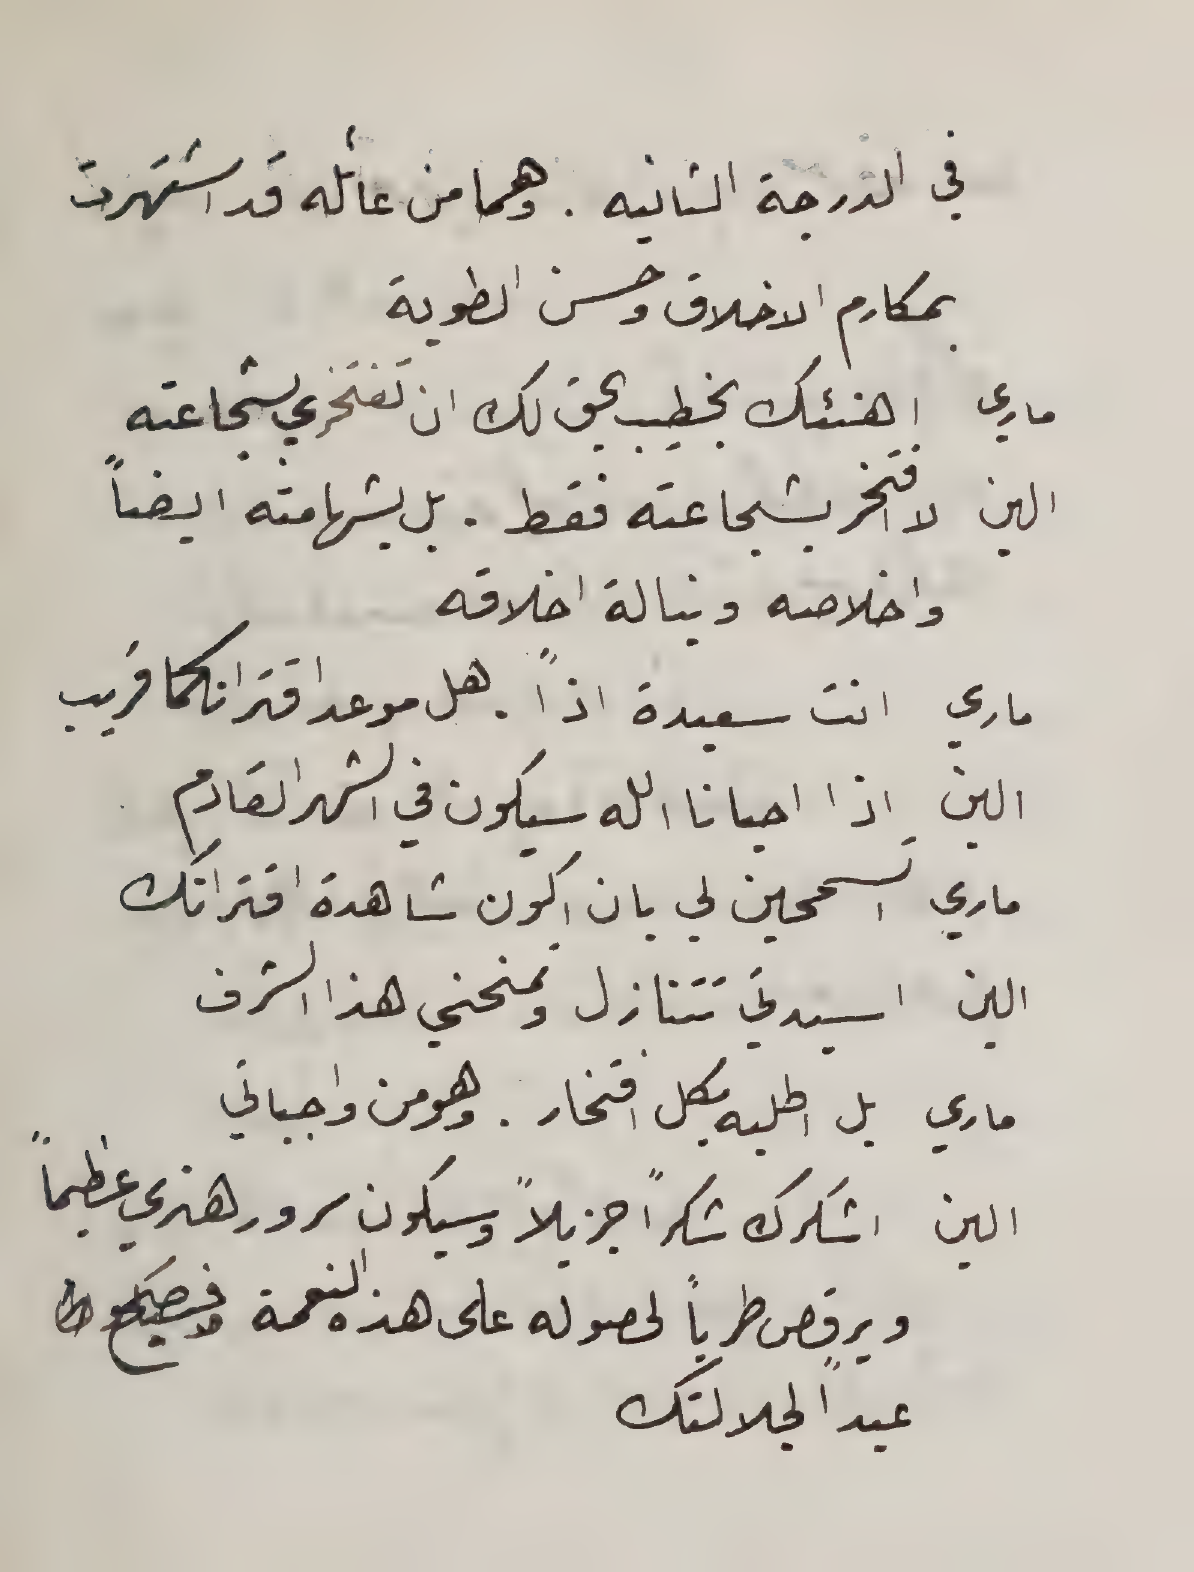 في الدرجة الثانيه . وهما من عائله قد اشتهرت
بمكارم الاخلاق وحسن الطوية
ماري اهنئك بخطيب يحق لك ان تفتخري بشجاعته
الين لا افتخر بشجاعته فقط . بل بشهامته ايضاً
واخلاصه ونبالة اخلاقه
ماري انت سعيدة اذاً . هل موعد اقترانكما قريب
الين اذا احيانا الله سيكون في الشهر القادم
ماري اتسمحين لي بان اكون شاهدة اقترانك
الين اسيدتي تتنازل وتمنحني هذا الشرف
ماري بل اطلبه بكل افتخار . وهو من واجباتي
الين اشكرك شكراً جزيلاً وسيكون سرور هنري عظيماً
ويرقص طرباً لحصوله على هذه النعمة
عبداً لجلالتك